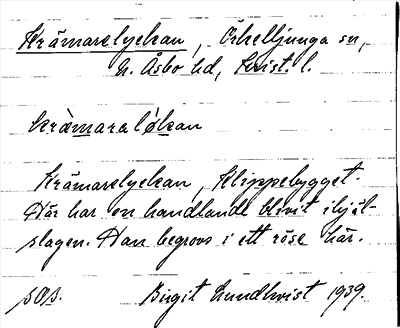 Krämarelyckan, Örkelljunga sn,
N. Åsbo hd, Krist. l.
kràmaralǿkan
Krämarelyckan, Klippebygget.
Här har en handlande blivit ihjäl-
slagen. Han begrovs i ett röse här.
sOs. Birgit Lundkvist 1939.